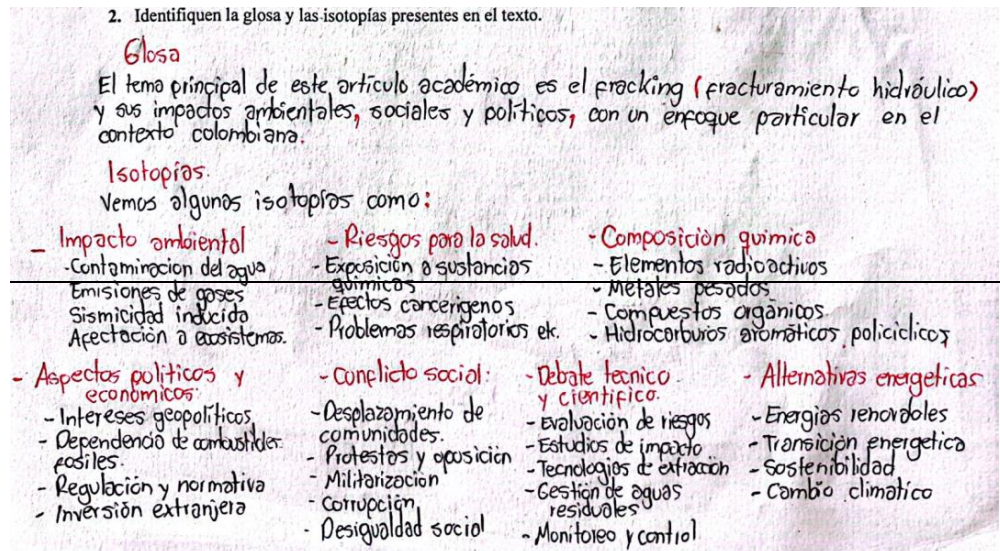 2. Identifiquen la glosa y las isotopías presentes en el texto.
Glosa
El tema principal de este artículo académico es el fracking (fracturamiento hidráulico)
y sus impactos ambientales, sociales y políticos, con un enfoque particular en el
contexto colombiana.
Isotopías.
Vemos algunas isotopías como:
- Impacto ambiental
-Contaminacion del agua
Emisiones de gases
Sismicidad inducida
Afectación a ecosistemas.
- Riesgos para la salud.
- Exposición a sustancias
químicas
- Efectos cancerígenos
- Problemas respiratorios etc.
- Composición química
- Elementos radioactivos
- Metales pesados
- Compuestos orgánicos
- Hidrocarburos aromáticos policíclicos
- Aspectos políticos y
económicos:
- Intereses geopolíticos
- Dependencia de combustibles
fosiles.
- Regulación y normativa
- Inversión extranjera
- Conflicto social:
- Desplazamiento de
comunidades.
- Protestas y oposición
- Militarización
- Corrupción
- Desigualdad social
- Debate tecnico
y científico.
- Evaluación de riesgos
- Estudios de impacto
- Tecnologías de extracción
- Gestión de aguas
residuales
- Monitoreo y control
- Alternativas energeticas
- Energías renovables
- Transición energetica
- Sostenibilidad
- Cambio climatico